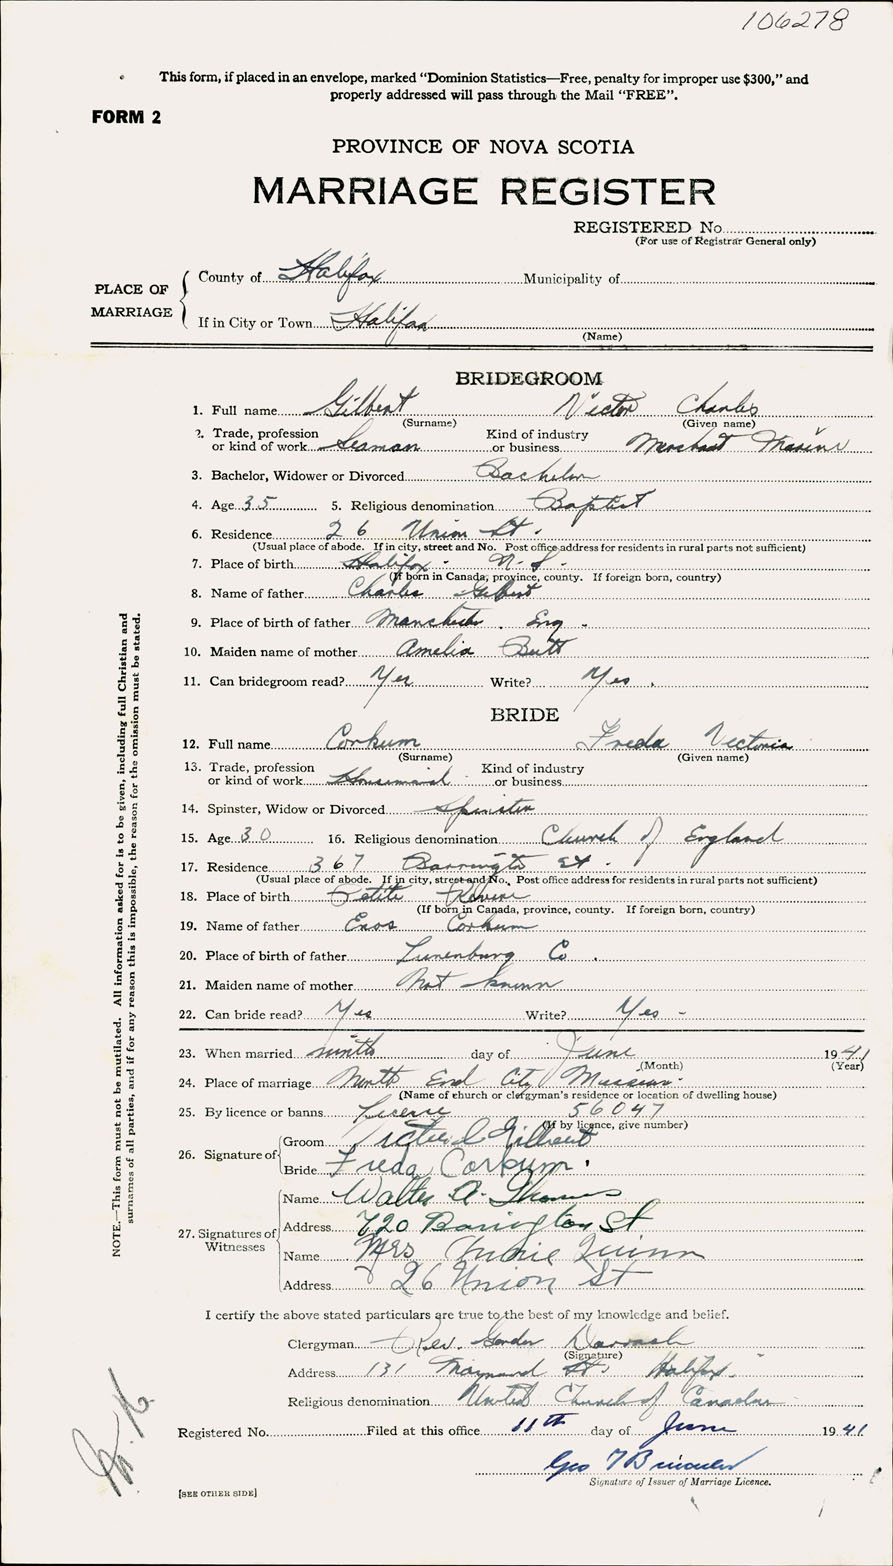 106278
This form, if placed in an envelope, marked “Dominion Statistics—Free, penalty for improper use $300,” and
properly addressed will pass through the Mail “FREE”.
FORM 2
PROVINCE OF NOVA SCOTIA
MARRIAGE REGISTER
REGISTERED No.
(For use of Registrar General only)
PLACE OF MARRIAGE
County of Halifax Municipality of
If in City or Town Halifax
(Name)
BRIDEGROOM
1. Full name Gilbert Victor Charles
(Surname) (Given name)
2. Trade, profession or kind of work Seaman Kind of industry or business Merchant Marine
3. Bachelor, Widower or Divorced Bachelor
4. Age 35 5. Religious denomination Baptist
6. Residence 26 Union St.
(Usual place of abode. If in city, street and No. Post office address for residents in rural parts not sufficient)
7. Place of birth Halifax - N.S.
(If born in Canada, province, county. If foreign born, country)
8. Name of father Charles Gilbert
9. Place of birth of father Manchester. Eng.
10. Maiden name of mother Amelia Butt
11. Can bridegroom read? Yes Write? Yes.
BRIDE
12. Full name Corkum Freda Victoria
(Surname) (Given name)
13. Trade, profession or kind of work Housemaid Kind of industry or business
14. Spinster, Widow or Divorced Spinster
15. Age 30 16. Religious denomination Church of England
17. Residence 367 Barrington St.
(Usual place of abode. If in city, street and No. Post office address for residents in rural parts not sufficient)
18. Place of birth Petite Riviere
(If born in Canada, province, county. If foreign born, country)
19. Name of father Enos Corkum
20. Place of birth of father Lunenburg Co.
21. Maiden name of mother Not known
22. Can bride read? Yes Write? Yes -
23. When married ninth day of June 1941
(Month) (Year)
24. Place of marriage North End City Mission.
(Name of church or clergyman's residence or location of dwelling house)
25. By licence or banns License 56047
(If by licence, give number)
26. Signature of
Groom Victor C Gilbert
Bride Freda Corkum.
27. Signatures of Witnesses
Name Walter A.
Address 720 Barrington St
Name Mrs Quinn
Address 26 Union St
I certify the above stated particulars are true to the best of my knowledge and belief.
Clergyman Rev. Gordon Darrach
(Signature)
Address 131 Maynard St. Halifax.
Religious denomination United Church of Canada
Registered No. Filed at this office 11th day of June 1941
Geo
Signature of Issuer of Marriage Licence.
[SEE OTHER SIDE]
NOTE.—This form must not be mutilated. All information asked for is to be given, including full Christian and
surnames of all parties, and if for any reason this is impossible, the reason for the omission must be stated.